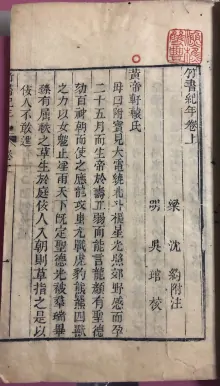 竹書紀年卷上
梁 沈約附注
明 吳琯校
黃帝軒轅氏
母曰附寶見大電繞北斗樞星光照郊野感而孕
二十五月而生帝於壽丘弱而能言龍顏有聖德
劾百神朝而使之應龍攻蚩尤戰虎豹熊羆四獸
之力以女魃止淫雨天下既定聖德光被羣瑞畢
臻有屈軼之草生於庭佞人入朝則草指之是以
佞人不敢進